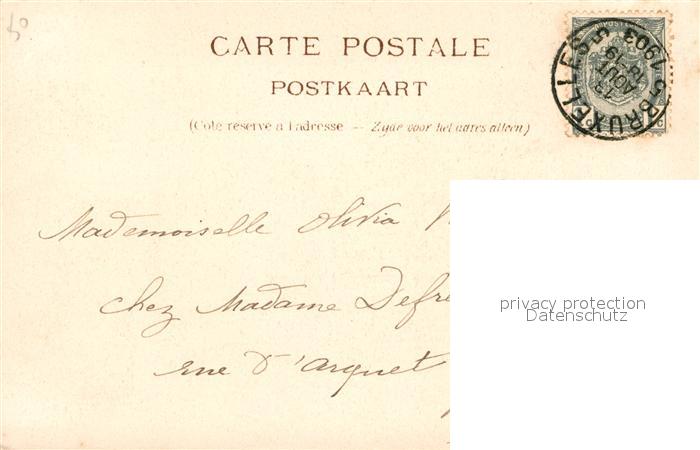 50
CARTE POSTALE
POSTKAART
(Côté réservé à l'adresse — Zijde voor het adres alleen)
BRUXELLES 5
13 AOUT
18-19
1903
Mademoiselle Olivia
chez Madame Defre
rue d'Arquet
privacy protection
Datenschutz